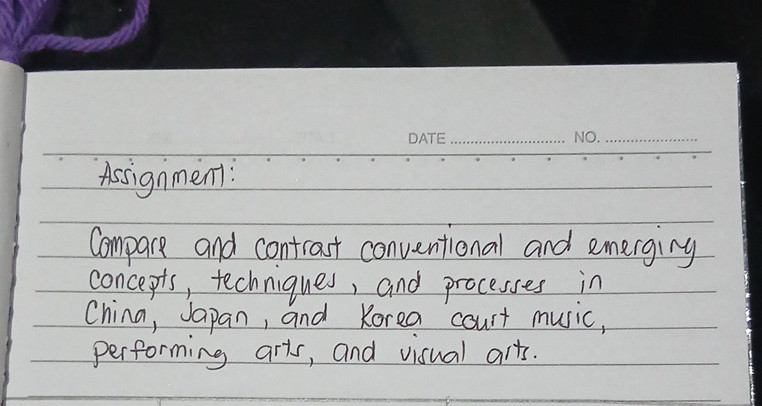 DATE ........................... NO. ......................
Assignment:
Compare and contrast conventional and emerging
concepts, techniques, and processes in
China, Japan, and Korea court music,
performing arts, and visual arts.